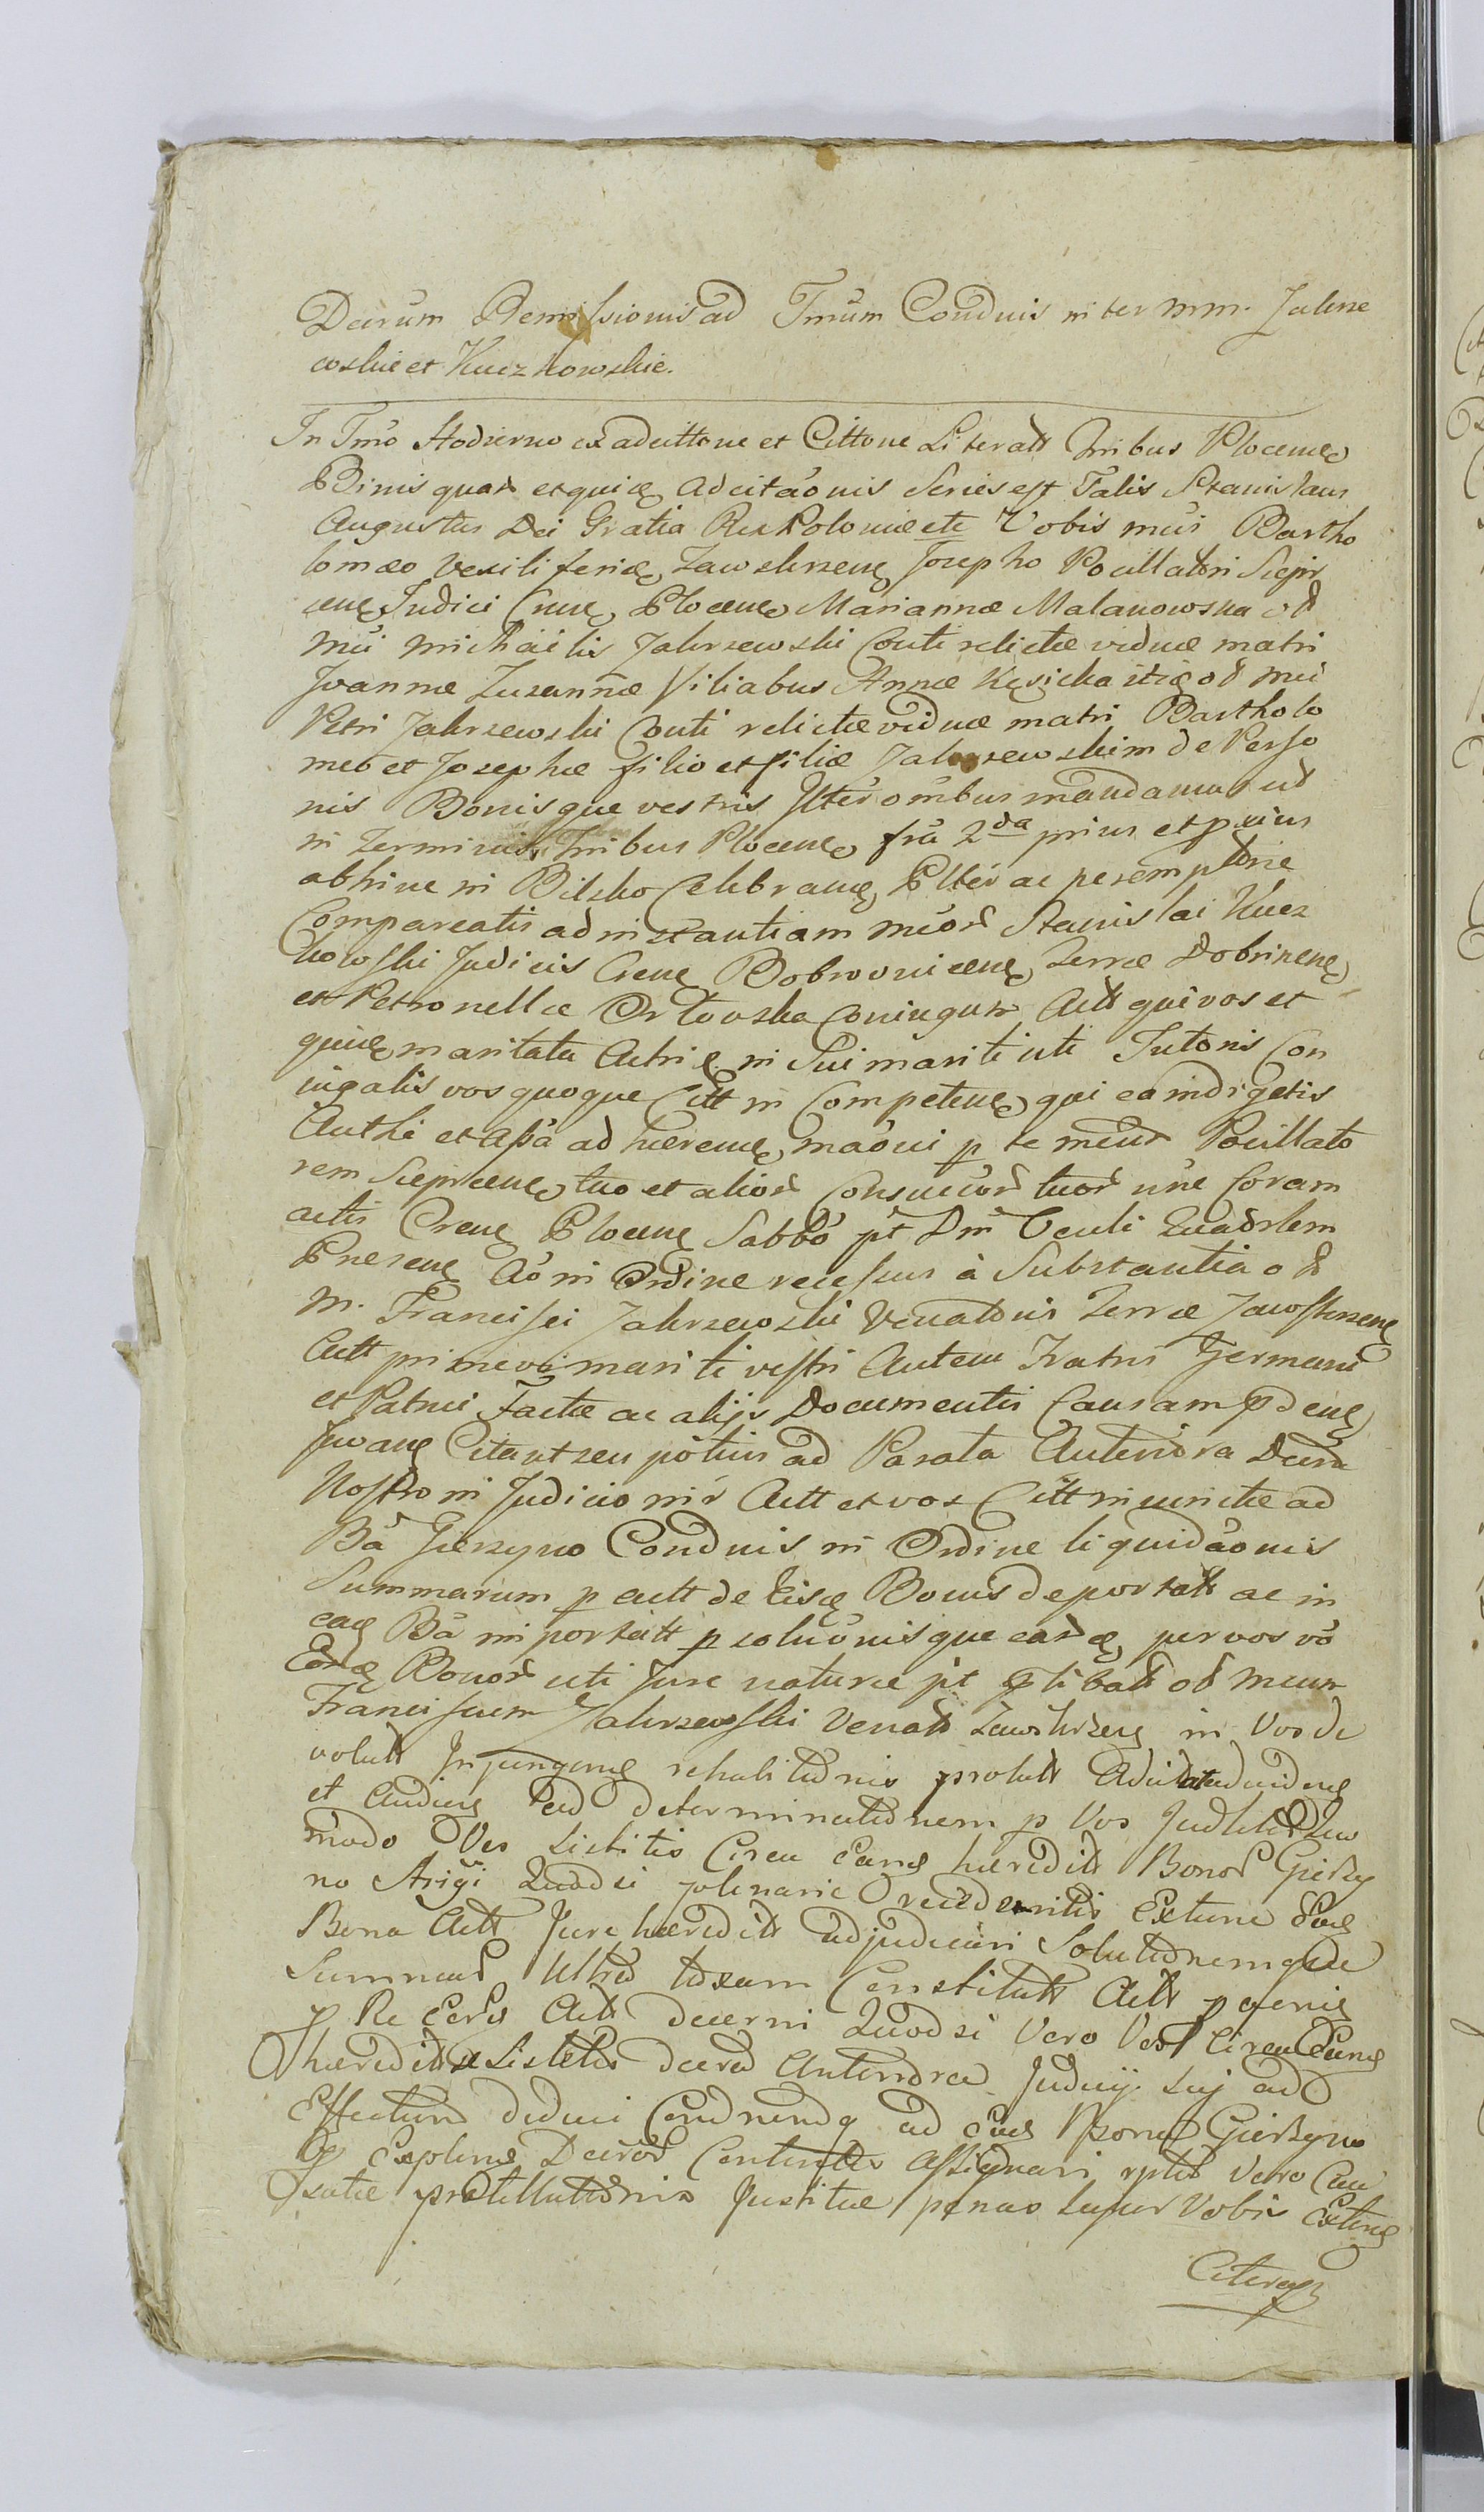 Decrum Remissionis ad Tmum Condnis inter mm. Jakrze
wskie et Kuczkowskie.
In Tmo Hodierno ex adcittone et Cittone Literatt Tribus Plocens
Binis quar et quidem Adcitaonis Series est Talis Stanislaus
Augustus Dei Gratia Rex Polonie etc Vobis mcis Bartho
lomæo Vexilifero Zawskrzens Josepho Pocillatori Sierpr
cens Judici Crens Plocens Mariannæ Malanowska olt
mci Michaëlis Jakrzewski Conti relictæ viduæ matri
Joannæ Zuzannæ filiabus Annæ Kęsicka itid olt mci
Petri Jakrzewski Conti relictæ viduæ matri Bartholo
meo et Josephæ filio et filiæ Jakrzewskim de Perso
nis Bonisque vestris Ilter omibus mandamus ut
in Terminis Tribus Plocens fria 2da prius et pxius
abhinc in Bilsko Celebrans Plter ac peremptorie
Compareatis ad instantiam mcor Stanislai Kucz
kowski Judicis Crens Bobrovnicens Terræ Dobrinens
et Petronellæ Orłowska Coniugum Actt qui vos et
quid maritata Actrix in Sui mariti uti Tutoris Con
iugalis vos quoque Citt in Competens qui ea indigetis
Authi et assa ad hærens maoni p te mcum Pocillato
rem Sieprcens tuo et alior Consuccor tuor nne Coram
actis Crens Plocens Sabbo pt Dni Oculi Quadrlem
Præsens Ao in Ordine recessus à Substantia olt
M. Francisci Jakrzewski Venatoris Terræ Zawskrzens
Actt primevi mariti vestri Autem Fratris Germani
et Patrui Factæ ac alijs Documentis Causam pdens
Juvans Citant seu potius ad Parata Anteriora Decra
Nostro in Judicio inr Actt et vos Citt in iunctæ ad
Ba Gierzyno Condnis in Ordine liquidaonis
Summarum p actt de Eisd Bonis deportatt ac in
ead Ba importatt p solucionisque eard per vos vo
Eord Bonor uti Jure naturæ pt pltibatt olt mcum
Franciscum Jakrzewski Venatt Zawskrzens in Vos de
volutt Injungens rehabilitonis prolatt Adcitat ad vidend
et Audiend ad determinationem p Vos
modo Vos Sistitis Circa Eand hæreditt Bonor Gierzy
no Strigi Quodsi plenarie recedentis Extunc Ead
Bona Actt Jure hæreditt adjudicari Solutionemque
Summar Ultra taxam Constitutt Actt p
p Re Eord Actt decerni Quodsi Vero Vos Circa Eand
hæreditt Sistetis decra Anteriora Judicij sui ad
Effectum deduci Condnemq ad Ead Bona Gierzyno
Explens Decror Contentis Assignari rptis Vero Cau
satæ protellationis Justitiæ pænas super Vobis Extend
Citeras